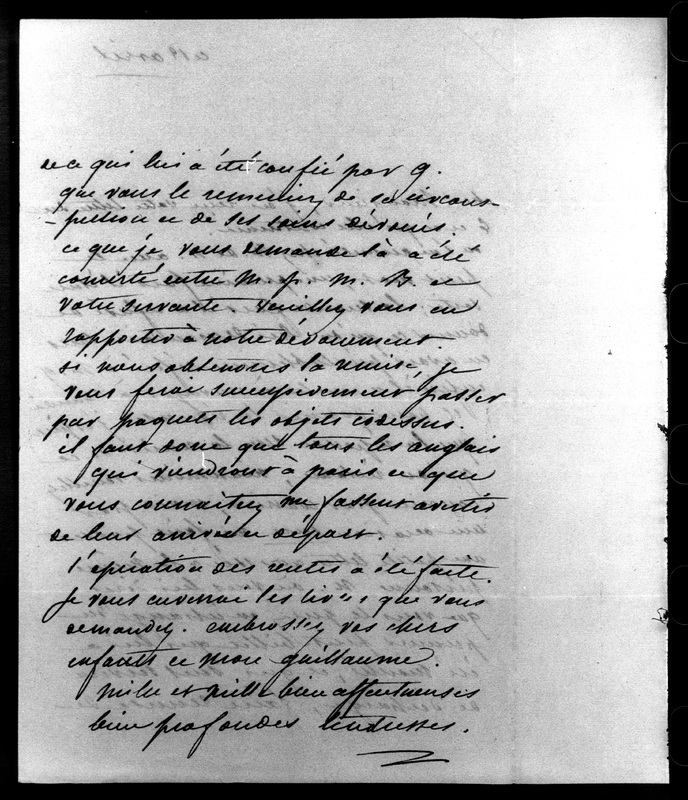 de ce qui lui a été confié par g.
que vous le remerciez de sa circons-
-pection et de ses soins dévoués.
ce que je vous demande là a été
concerté entre M. p. M. B. et
votre servante. veuillez vous en
rapporter à notre dévouement.
si nous obtenons la remise, je
vous ferai successivement passer
par paquets les objets cidessus.
il faut donc que tous les anglais
qui viendront à paris et que
vous connaitrez me fassent avertir
de leur arrivée et départ.
l'opération des rentes a été faite.
Je vous enverrai les livres que vous
demandez. embrassez vos chers
enfants et mon guillaume.
mille et mille bien affectueuses
bien profondes tendresses.